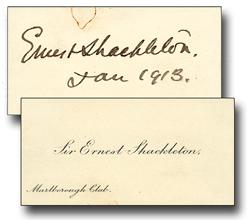 Ernest Shackleton.
Jan 1913.
Sir Ernest Shackleton,
Marlborough Club.